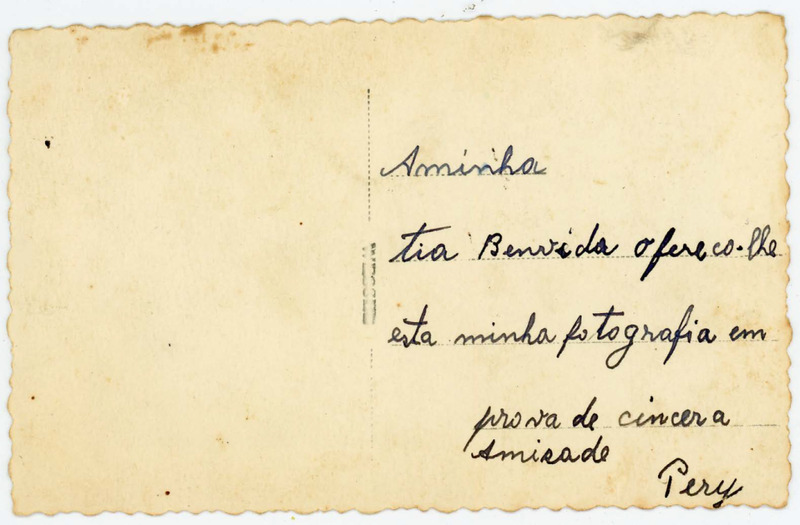 Aminha
tia Benvida ofereco-lhe
esta minha fotografia em
prova de cincera
Amisade
Pery